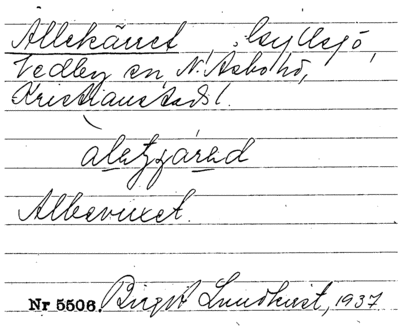 Allekänet, Gyllsjö,
Vedby sn, N. Åsbo hd,
Kristianstads l.
Albevuxet.
Nr 5506. Birgit Lundkvist, 1937